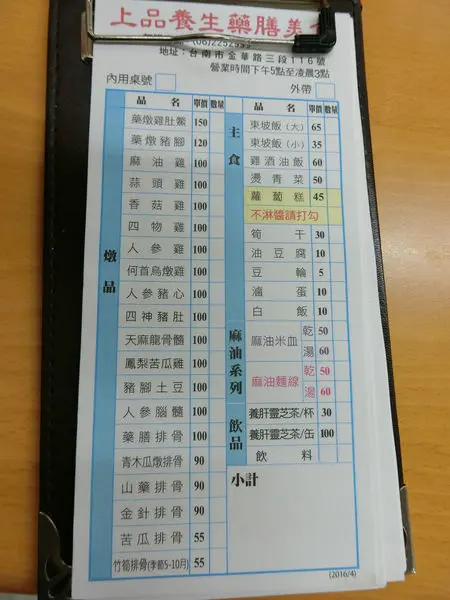 上品養生藥膳美
地址:台南市金華路三段116號
營業時間下午5點至凌晨3點
內用桌號
外帶
品名 單價 數量
燉品
藥燉雞肚鱉 150
藥燉豬腳 120
麻油雞 100
蒜頭雞 100
香菇雞 100
四物雞 100
人參雞 100
何首烏燉雞 100
人參豬心 100
四神豬肚 100
天麻龍骨髓 100
鳳梨苦瓜雞 100
豬腳土豆 100
人參腦髓 100
藥膳排骨 100
青木瓜燉排骨 90
山藥排骨 90
金針排骨 90
苦瓜排骨 55
竹筍排骨(季節5-10月) 55
品名 單價 數量
主食
東坡飯(大) 65
東坡飯(小) 35
雞酒油飯 60
燙青菜 50
蘿蔔糕 45
不淋醬請打勾
筍干 30
油豆腐 10
豆輪 5
滷蛋 10
白飯 10
麻油系列
麻油米血 乾 50
湯 60
麻油麵線 乾 50
湯 60
飲品
養肝靈芝茶/杯 30
養肝靈芝茶/缶 100
飲料
小計
(2016/4)